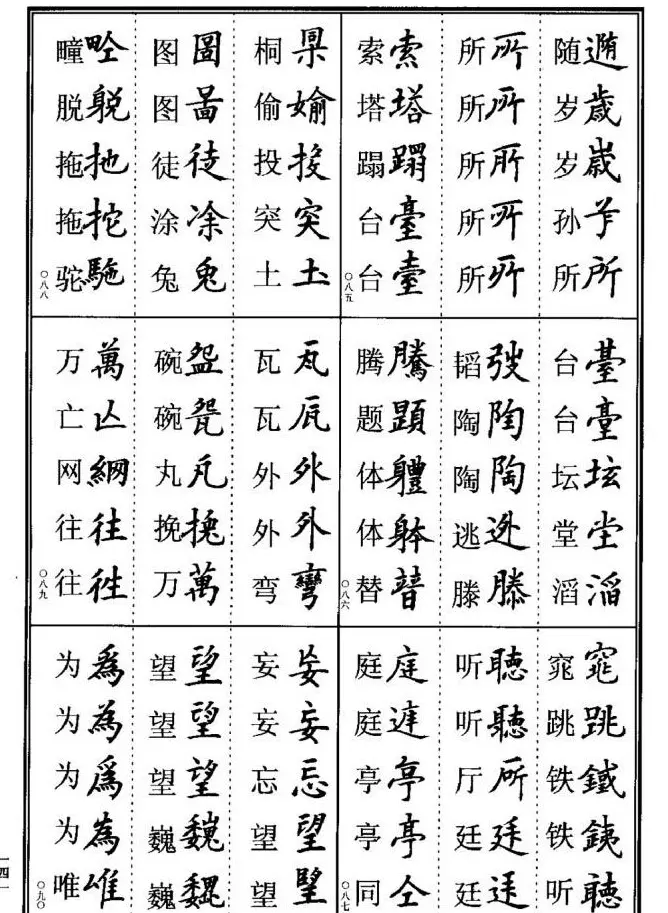 随遀 岁歲 岁嵗 孙 所所
所所 所 所 所 所
索索 塔塔 蹋蹋 台臺 台臺
〇八五
台臺 台臺 坛 堂坣 滔滔
韬弢 陶陶 陶陶 逃迯 滕滕
腾騰 题題 体軆 体躰 替替
〇八六
窕窕 跳跳 铁鐵 铁銕 听聴
听聴 听聽 厅 廷廷 廷
庭庭 庭 亭亭 亭亭 同仝
〇八七
桐 偷媮 投投 突突 土圡
图圖 图啚 徒徒 涂凃 兔兎
疃 脱 拖扡 拖拕 驼駞
〇八八
瓦瓦 瓦 外外 外外 弯彎
碗盌 碗 丸 挽 万萬
万萬 亡亾 网網 往往 往徃
〇八九
妄妄 妄妄 忘忘 望望 望朢
望望 望望 望望 巍巍 巍
为為 为為 为爲 为為 唯唯
〇九〇
一四一